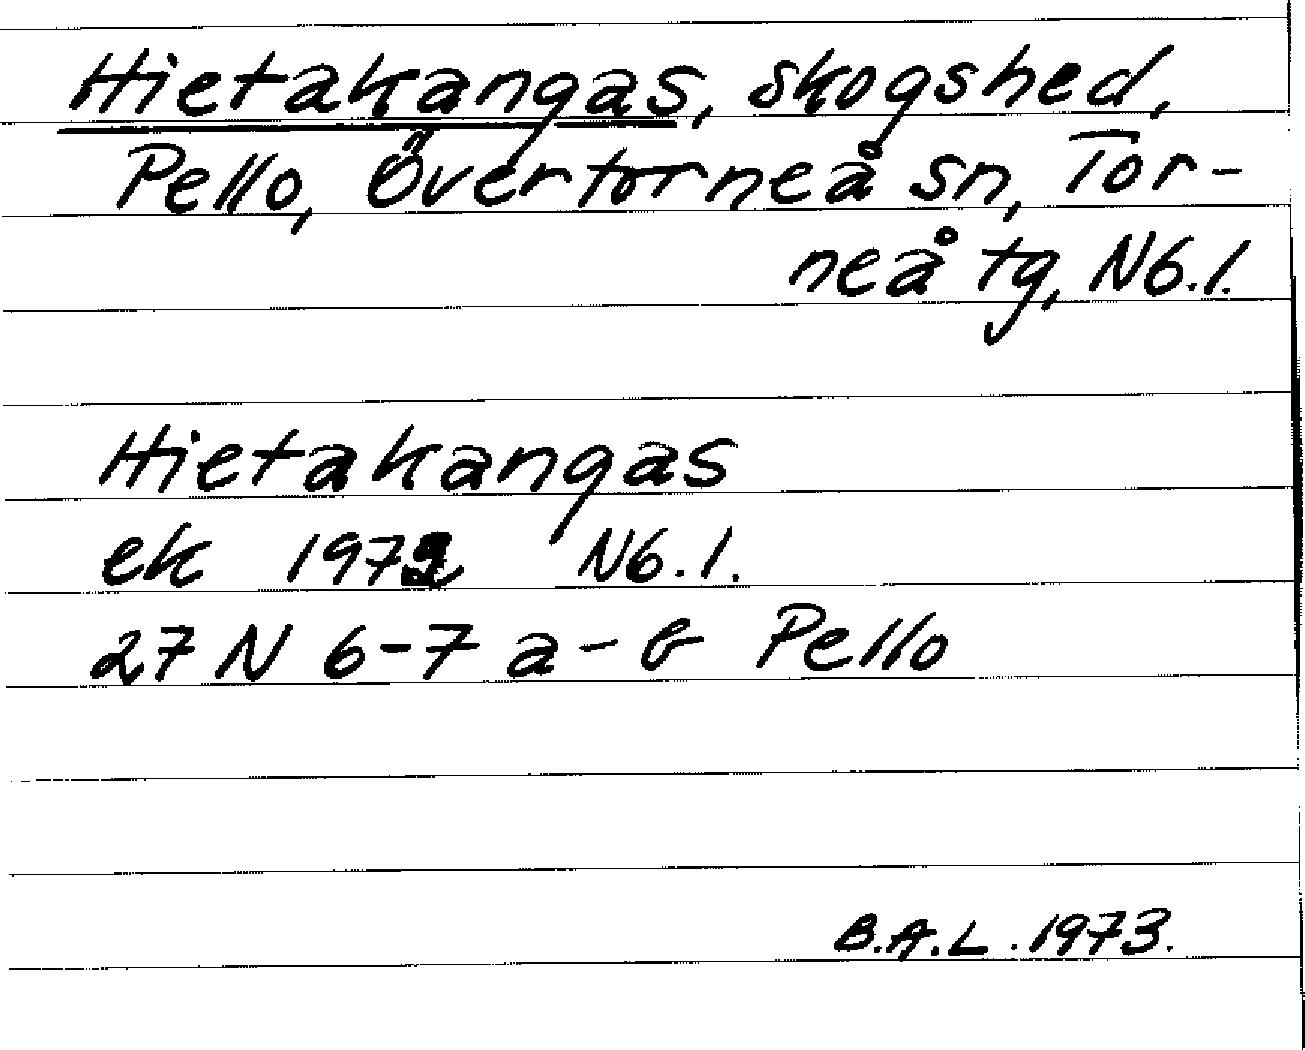 Hietakangas, skogshed,
Pello, Övertorneå sn, Tor-
neå tg, N6.1.
Hietakangas
ek 1972 N6.1.
27 N 6-7 a-b Pello
B.A.L. 1973.